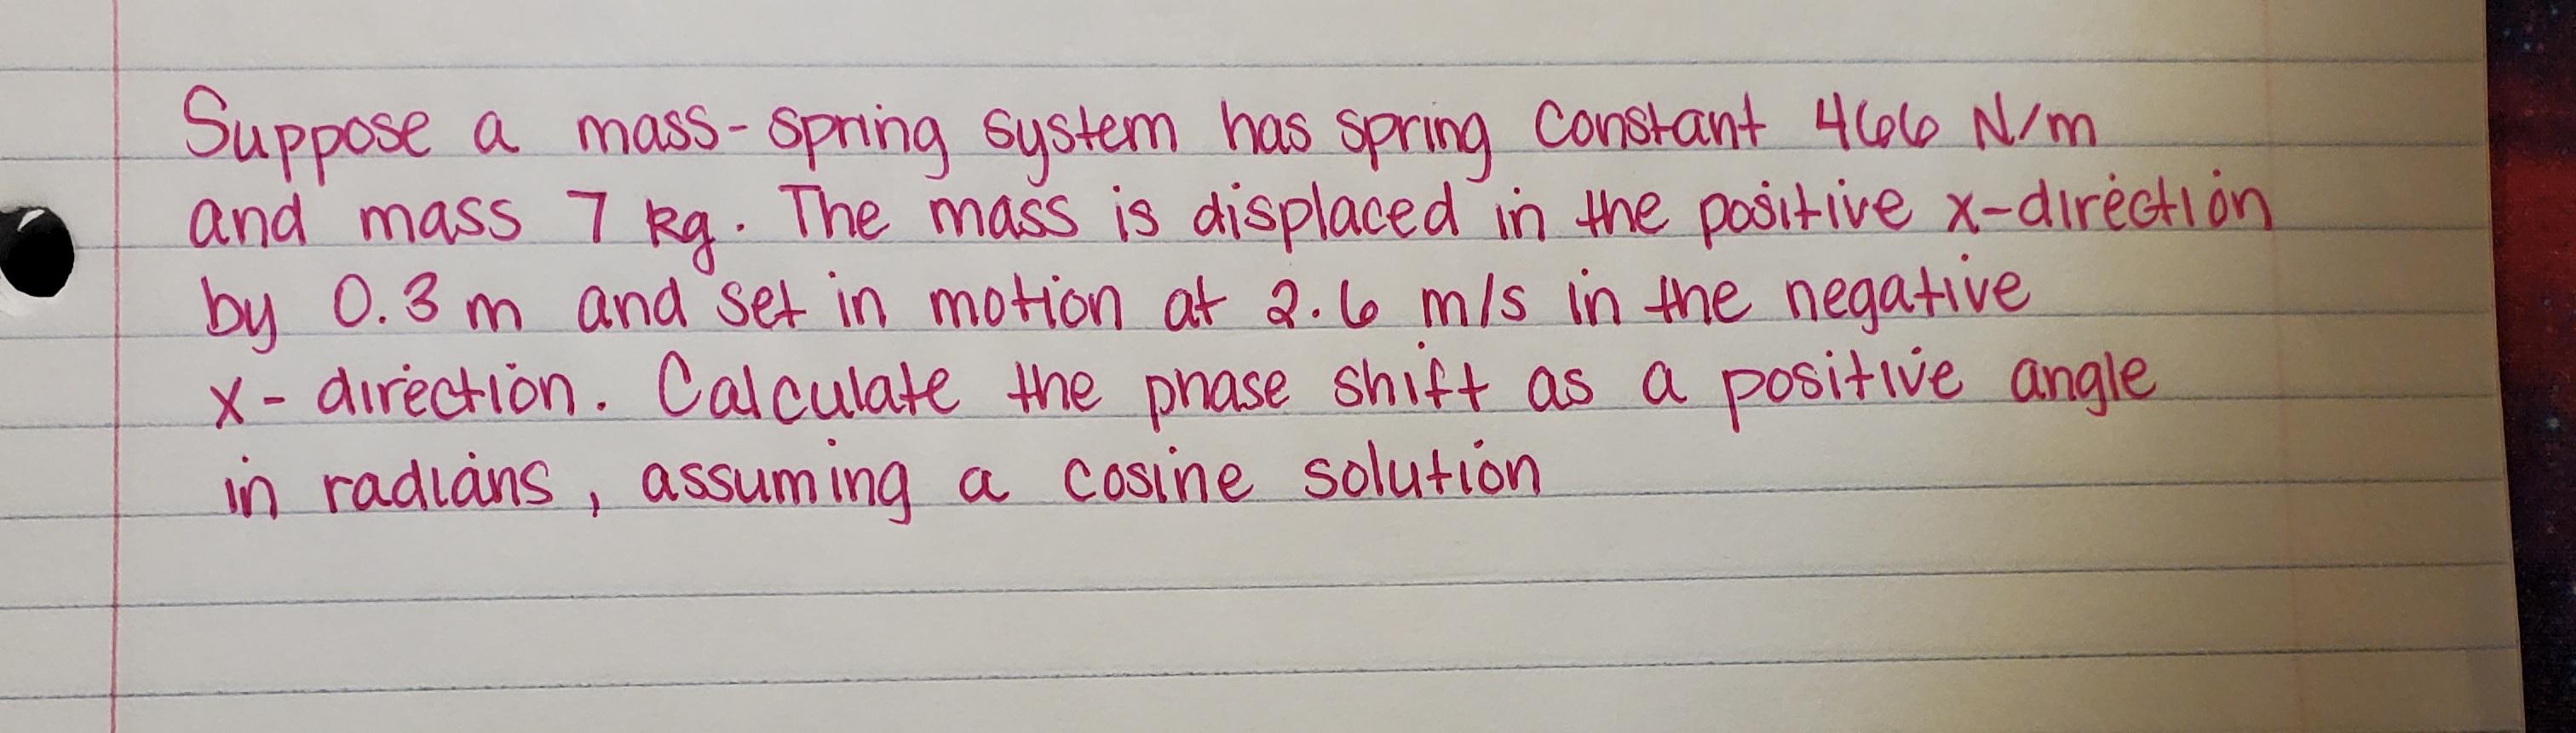 Suppose a mass-spring system has spring constant 466 N/m
and mass 7 kg. The mass is displaced in the positive x-direction
by 0.3 m and set in motion at 2.6 m/s in the negative
x-direction. Calculate the phase shift as a positive angle
in radians, assuming a cosine solution